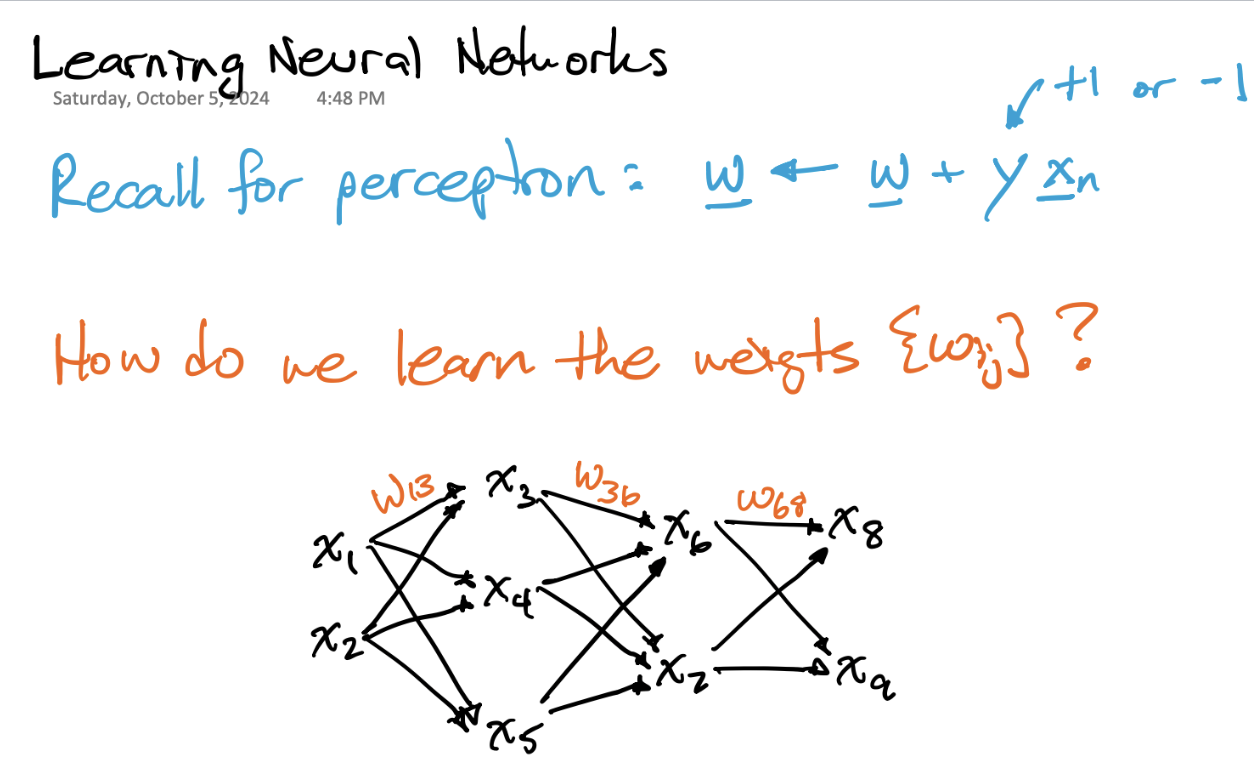 Learning Neural Networks
Saturday, October 5, 2024 4:48 PM
+1 or -1
Recall for perceptron: w ← w + y xn
How do we learn the weigts {wij}?
w13 x3 w36 w68
x1 x6 x8
x4
x2 x7 x9
x5